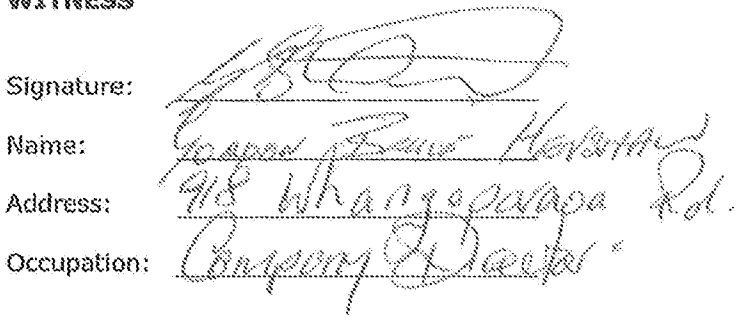 WITNESS
Signature:
Name: Gordon
Address: 918 Whangaparaoa Rd.
Occupation: Company Director